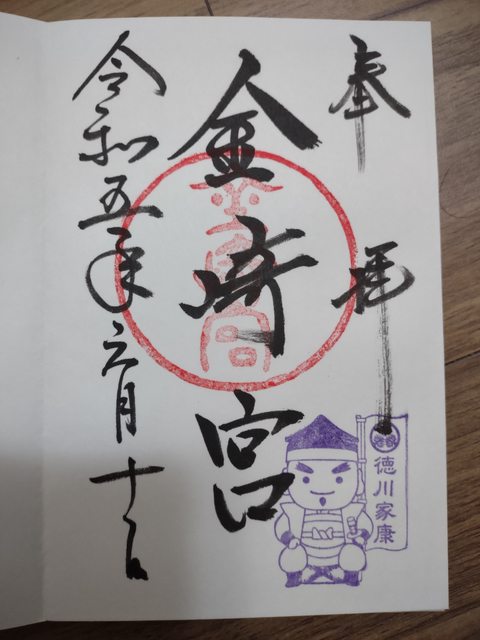 奉拝
金崎宮
令和五年六月十一日
徳川家康